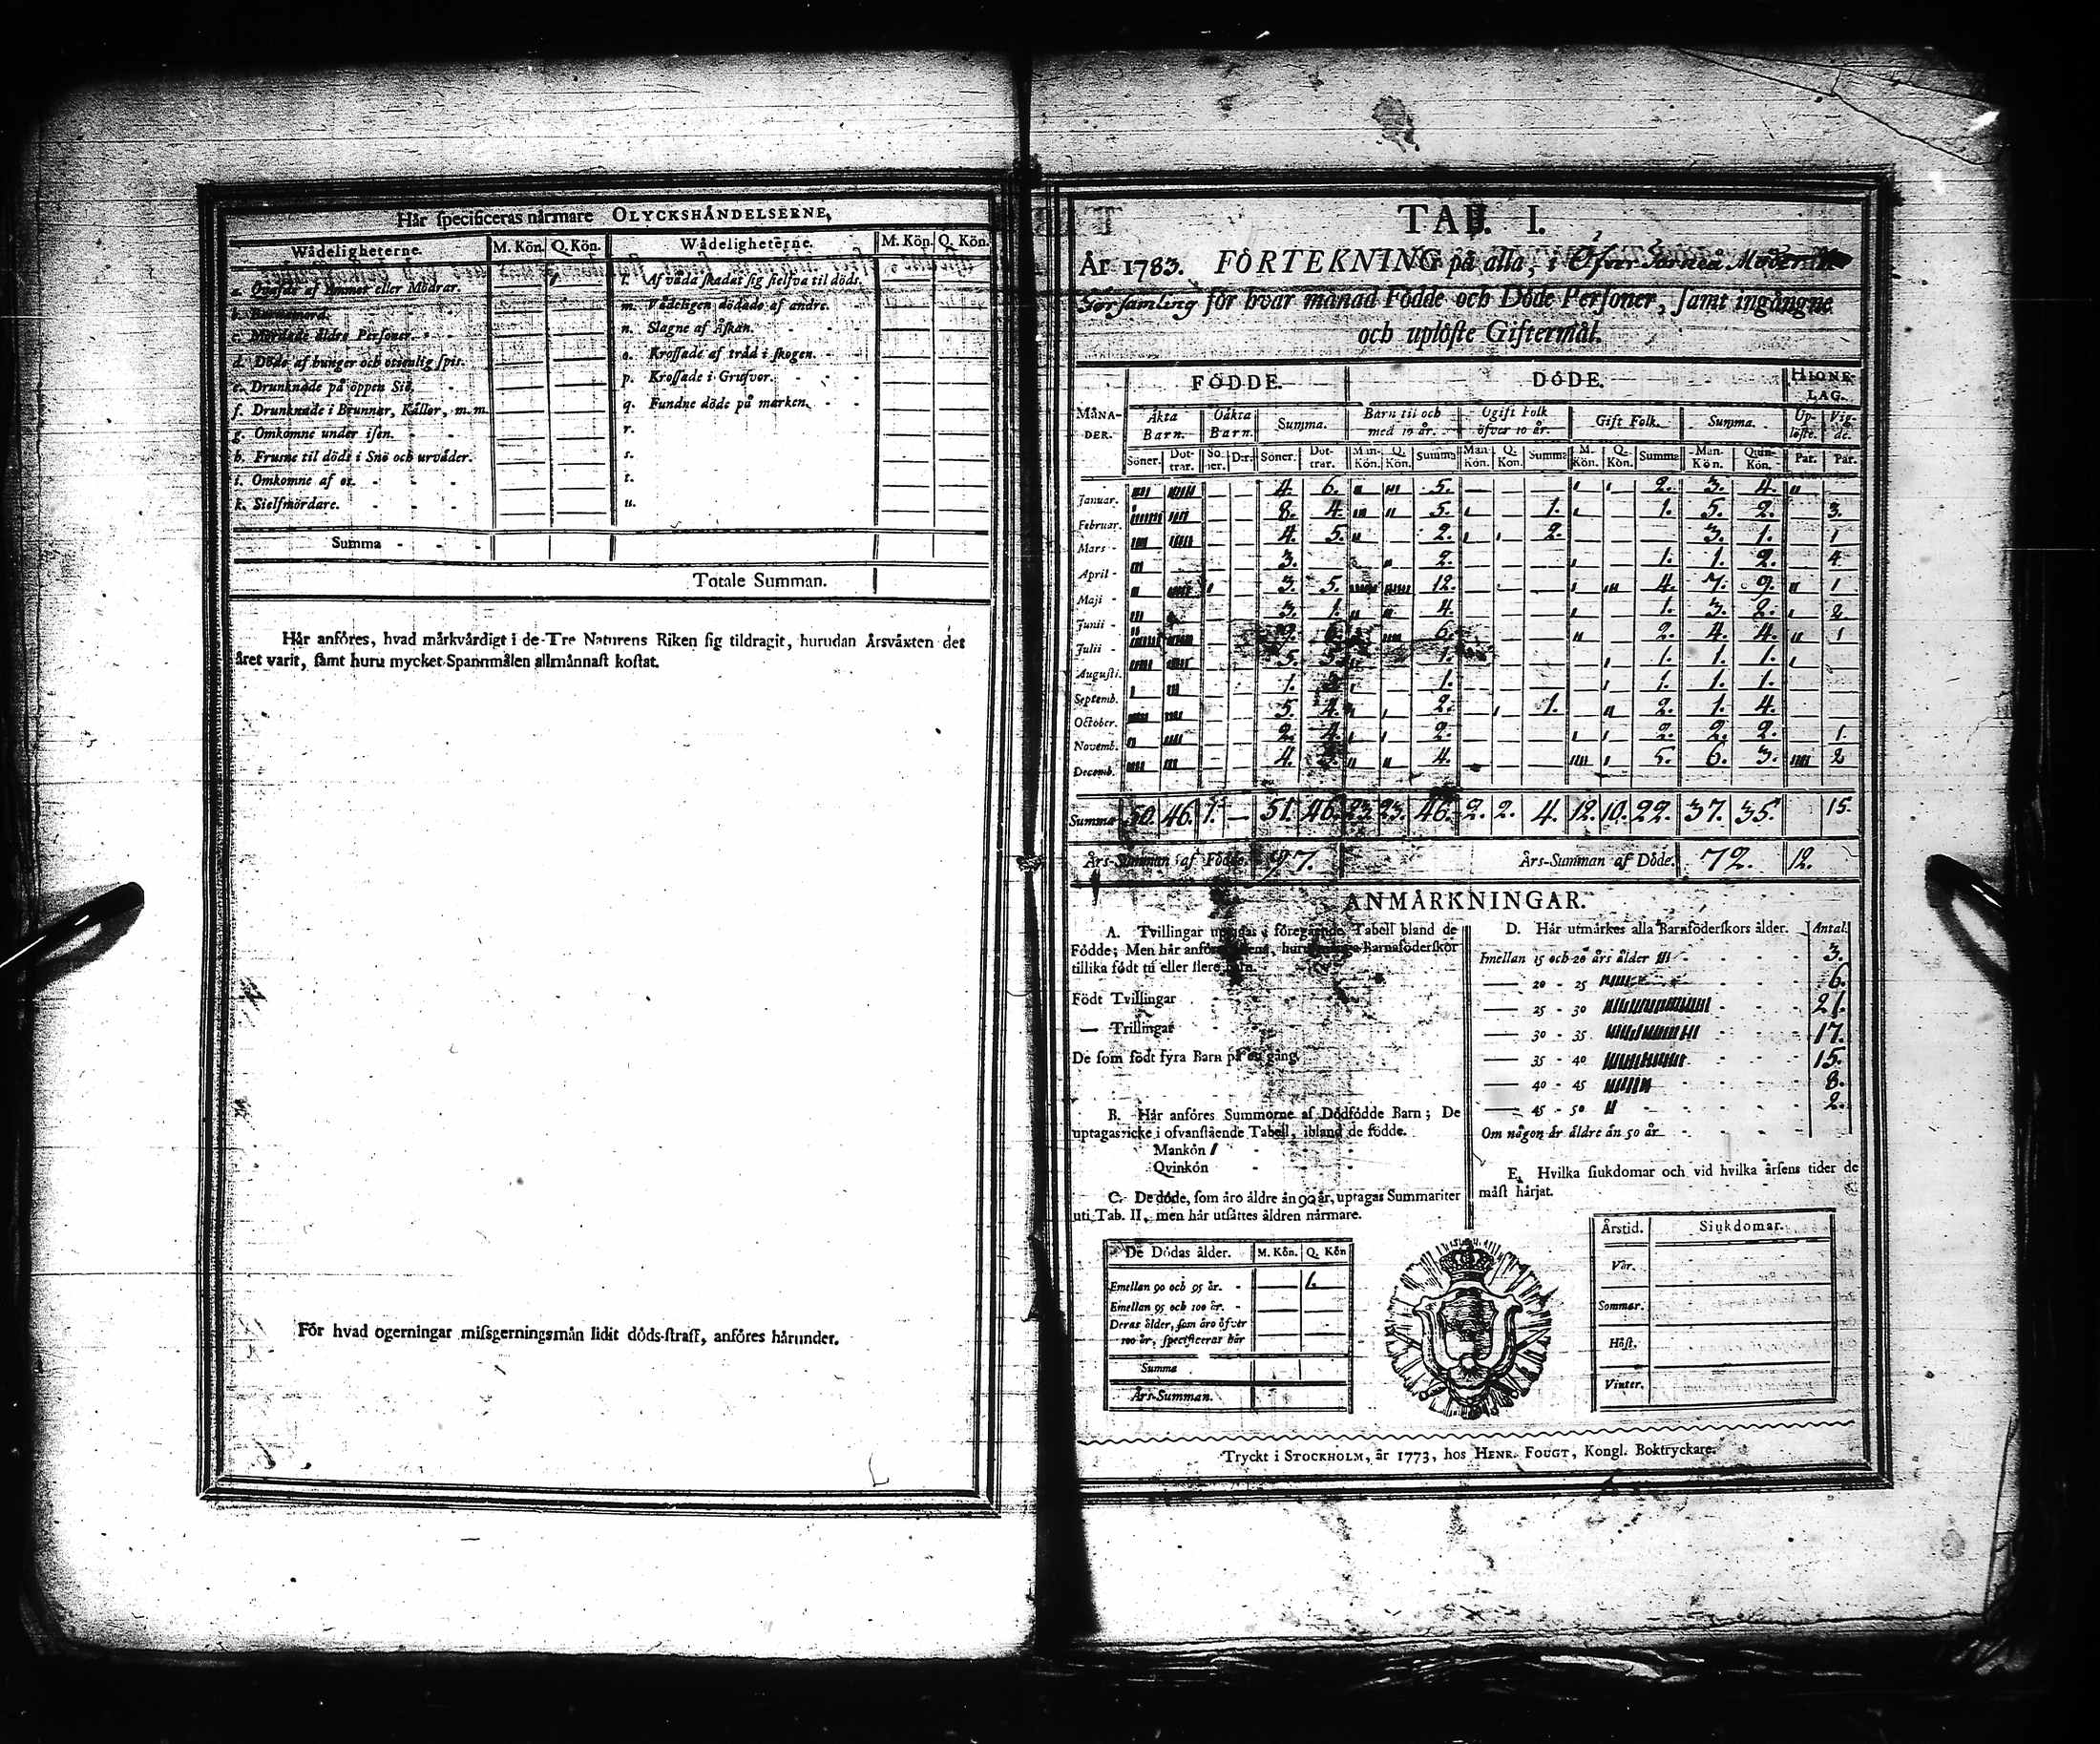 Här specificeras närmare OLYCKSHÄNDELSERNE,
Wådeligheterne. M. Kön. Q. Kön. Wådeligheterne. M. Kön. Q. Kön.
a. Qväfde af Ammor eller Mödrar. 1 l. Af våda skadat sig sielfva til döds.
b. Barnamord. m. Vådeligen dödade af andre.
c. Mördade äldre Personer. n. Slagne af Åskan.
d. Döde af hunger och otienlig spis. o. Krossade af träd i skogen.
e. Drunknade på öppen Siö. p. Krossade i Grufvor.
f. Drunknade i Brunnar, Källor, m.m. q. Fundne döde på marken.
g. Omkomne under isen. r.
h. Frusne til döds i Snö och urväder. s.
i. Omkomne af os. t.
k. Sielfmördare. u.
Summa
Totale Summan.
Här anföres, hvad märkvärdigt i de Tre Naturens Riken sig tildragit, hurudan Årsväxten det
året varit, samt huru mycket Spannmålen allmännast kostat.
För hvad ogerningar missgerningsmän lidit döds-straff, anföres härunder.
TAB. I.
År 1783. FÖRTEKNING på alla, i Öfver
Församling för hvar månad Födde och Döde Personer, samt ingångne
och uplöste Giftermål.
MÅNADER. FÖDDE. DÖDE. HIONELAG.
Äkta Barn. Oäkta Barn. Summa. Barn til och med 10 år. Ogift Folk öfver 10 år. Gift Folk. Summa. Uplöste. Vigde.
Söner. Dottrar. Söner. D:r. Söner. Dottrar. Mankön. Q. Kön. Summa Mankön. Q. Kön. Summa M. Kön. Q. Kön. Summa Mankön. Quinkön. Par. Par.
Januar. 4. 6. 5. 2. 3. 4.
Februar. 8. 4. 5. 1. 1. 5. 2. 3.
Mars 4. 5. 2. 2. 3. 1. 1
April 3. 2. 1. 1. 2. 4
Maji 3. 5. 12. 4. 7. 9. 1
Junii 3. 1. 4. 1. 3. 2. 2
Julii 9. 6. 6. 2. 4. 4. 1
Augusti. 5. 5. 1. 1. 1. 1.
Septemb. 1. 1. 1. 1. 1.
October. 5. 4. 2. 1. 2. 1. 4.
Novemb. 2. 4. 2. 2. 2. 2. 1.
Decemb. 4. 3. 4. 5. 6. 3. 2
Summa 50. 46. 1. — 51. 46. 23. 23. 46. 2. 2. 4. 12. 10. 22. 37. 35. 15.
Års-Summan af Födde. 97. Års-Summan af Döde. 72. 12.
ANMÄRKNINGAR.
A. Tvillingar uptagas i föregående Tabell bland de
Födde; Men här anföres huru Barnaföderskor
tillika födt tu eller flere Barn.
Födt Tvillingar
— Trillingar
De som födt fyra Barn på en gång
B. Här anföres Summorne af Dödfödde Barn; De
uptagas icke i ofvanstående Tabell, ibland de födde.
Mankön 1
Qvinkön
C. De döde, som äro äldre än 90 år, uptagas Summariter
uti Tab. II, men här utsättes åldren närmare.
De Dödas ålder. M. Kön. Q. Kön
Emellan 90 och 95 år. 1.
Emellan 95 och 100 år.
Deras ålder, som äro öfver
100 år, specificeras här
Summa
Års-Summan.
D. Här utmärkes alla Barnföderskors ålder. Antal.
Imellan 15 och 20 års ålder 3.
— 20 - 25 6.
— 25 - 30 21.
— 30 - 35 17.
— 35 - 40 15.
— 40 - 45 8.
— 45 - 50 2.
Om någon är äldre än 50 år
E. Hvilka siukdomar och vid hvilka årsens tider de
mäst härjat.
Årstid. Siukdomar.
Vår.
Sommar.
Höst.
Vinter.
Tryckt i STOCKHOLM, år 1773, hos HENR. FOUGT, Kongl. Boktryckare.